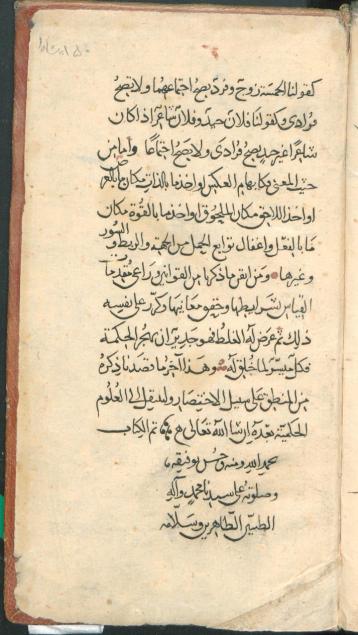 كقولنا الخمسة زوج و فرد يصح اجتماعهما ولا يصح
فرادى وكقولنا فلان جيد وفلان شاعر اذا كان
شاعرا غير جيد يصح فرادى ولا يصح اجتماعا واما من
حيث المعنى فكايهام العكس واخذ ما بالذات مكان ما بالعرض
او اخذ اللاحق مكان الملحوق او اخذ ما بالقوة مكان
ما بالفعل واغفال توابع الحمل من الجهة والربط والسور
وغيرها ومن اتقن ما ذكرنا من القوانين وراعى مقدمات
القياس بشرايطها وحقق معانيها وكرر على نفسه
ذلك ثم عرض له الغلط فهو جدير ان يهجر الحكمة
فكل ميسر لما خلق له وهذا آخر ما قصدنا ذكره
من المنطق على سبيل الاختصار ولننتقل الى العلوم
الحكمية بعده ان شاء الله تعالى تم الكتاب
بحمد الله ومنه وحسن توفيقه
وصلوته على سيدنا محمد وآله
الطيبين الطاهرين وسلامه